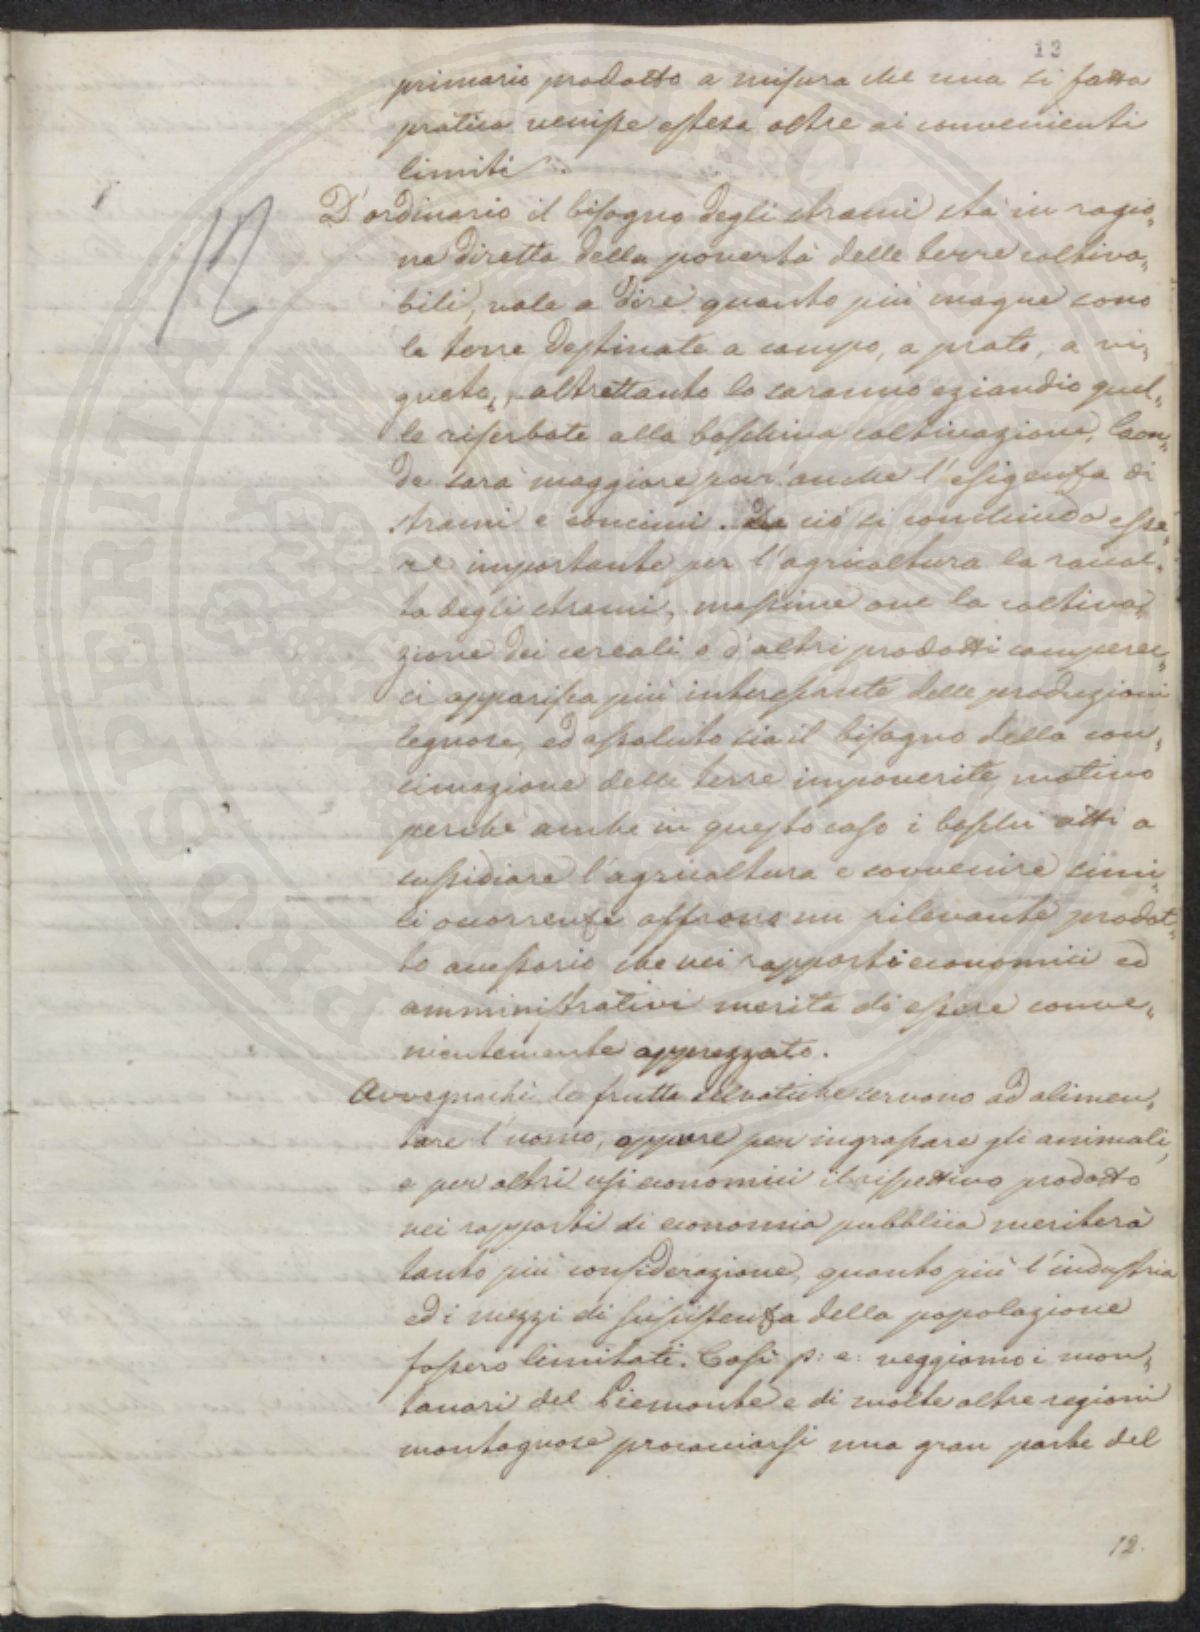 12
primario prodotto a misura che una si fatta
pratica venisse estesa oltre ai convenienti
limiti.
12
D'ordinario il bisogno degli strami sta in ragio„
ne diretta della povertà delle terre coltiva„
bili, vale a dire quanto più magre sono
le terre destinate a campo, a prato, a vi„
gneto, altrettanto lo saranno eziandio quel„
le riserbate alla boschiva coltivazione, laon„
de sarà maggiore pur'anche l'esigenza di
strami e concimi. Da ciò si conchiuda esse„
re importante per l'agricoltura la raccol„
ta degli strami, massime ove la coltiva„
zione dei cereali o d'altri prodotti campere„
ci apparisca più interessante delle produzioni
legnose, ed assoluto sia il bisogno della con„
cimazione delle terre impoverite, motivo
perchè anche in questo caso i boschi atti a
sussidiare l'agricoltura e sovvenire simi„
li occorrenze offrono un rilevante prodot„
to accessorio che nei rapporti economici ed
amministrativi merita di essere conve„
nientemente apprezzato.
Avvegnachè le frutta selvatiche servono ad alimen„
tare l'uomo, oppure per ingrassare gli animali,
e per altri usi economici il rispettivo prodotto
nei rapporti di economia pubblica meriterà
tanto più considerazione, quanto più l'industria
ed i mezzi di sussistenza della popolazione
fossero limitati. Così p: e: veggiamo i mon„
tanari del Piemonte e di molte altre regioni
montagnose procacciarsi una gran parte del
12.
PROSPERITA